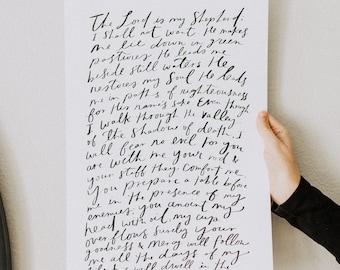 The Lord is my Shepherd;
I shall not want. He makes
me lie down in green
pastures. He leads me
beside still waters. He
restores my soul. He leads
me in paths of righteousness
for His name's sake. Even though
I walk through the valley
of the shadow of death, I
will fear no evil for you
are with me your rod &
your staff they comfort me.
You prepare a table before
me in the presence of my
enemies; you anoint my
head with oil; my cup
overflows surely your
goodness & mercy will follow
me all the days of my
will dwell in the